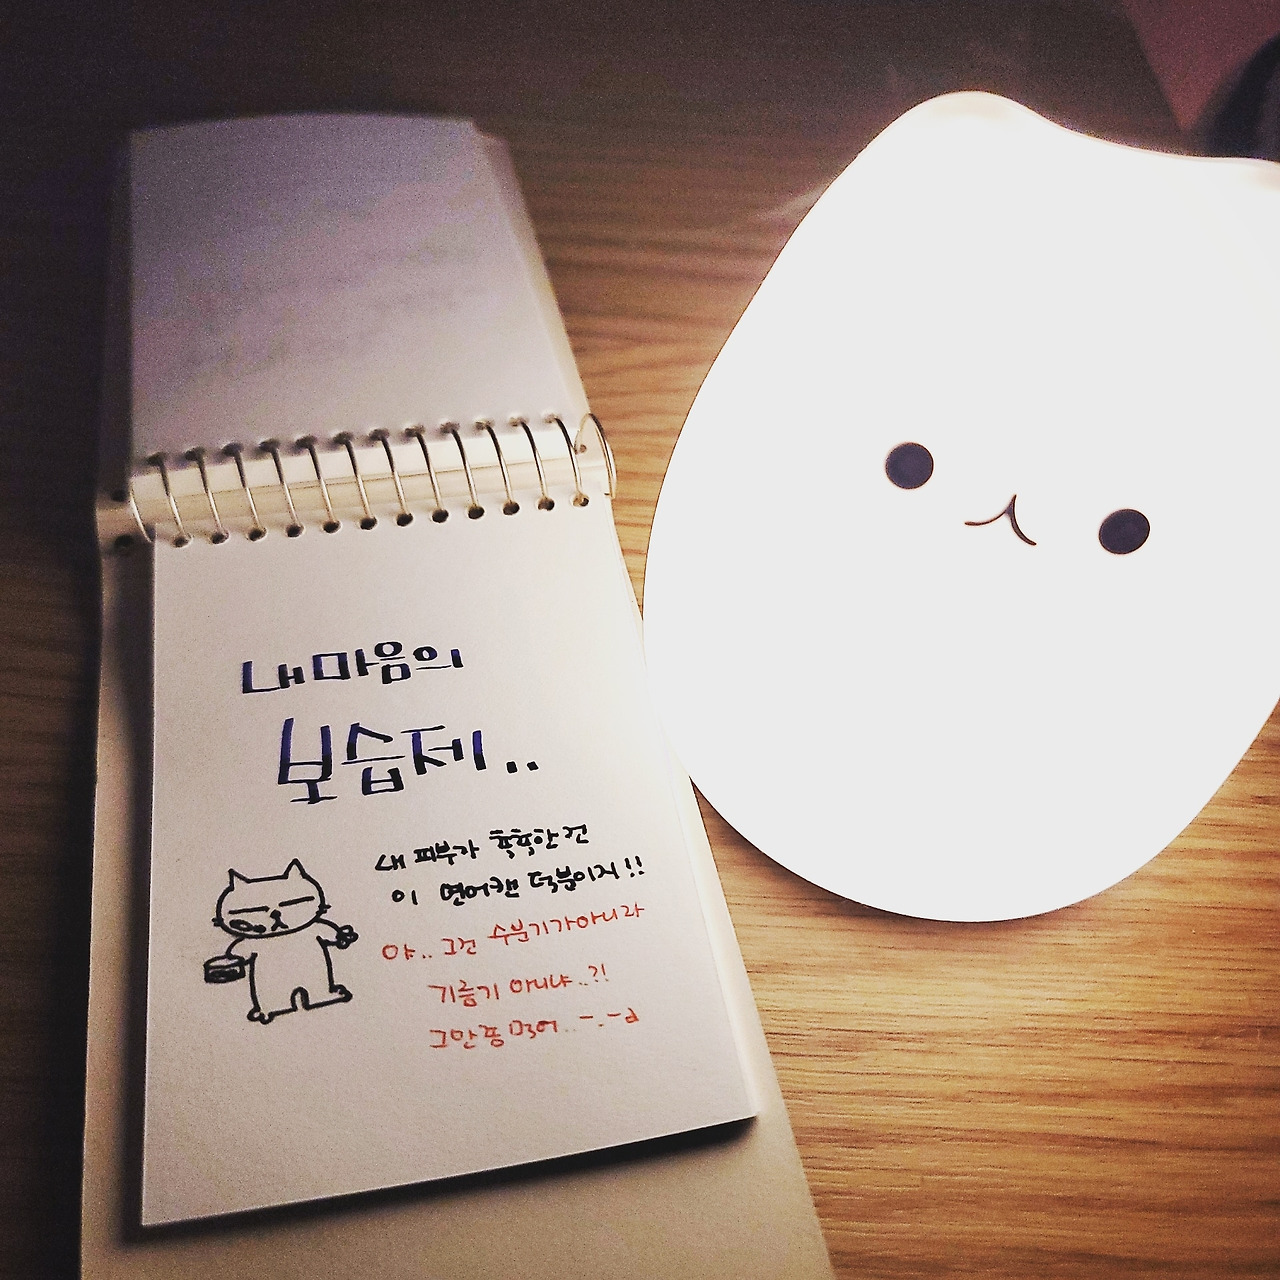 내 마음의
보습제..
내 피부가 촉촉한 건
이 연어캔 덕분이지!!
야.. 그건 수분기가아니라
기름기 아니냐..?!
그만좀 먹어..-.-d